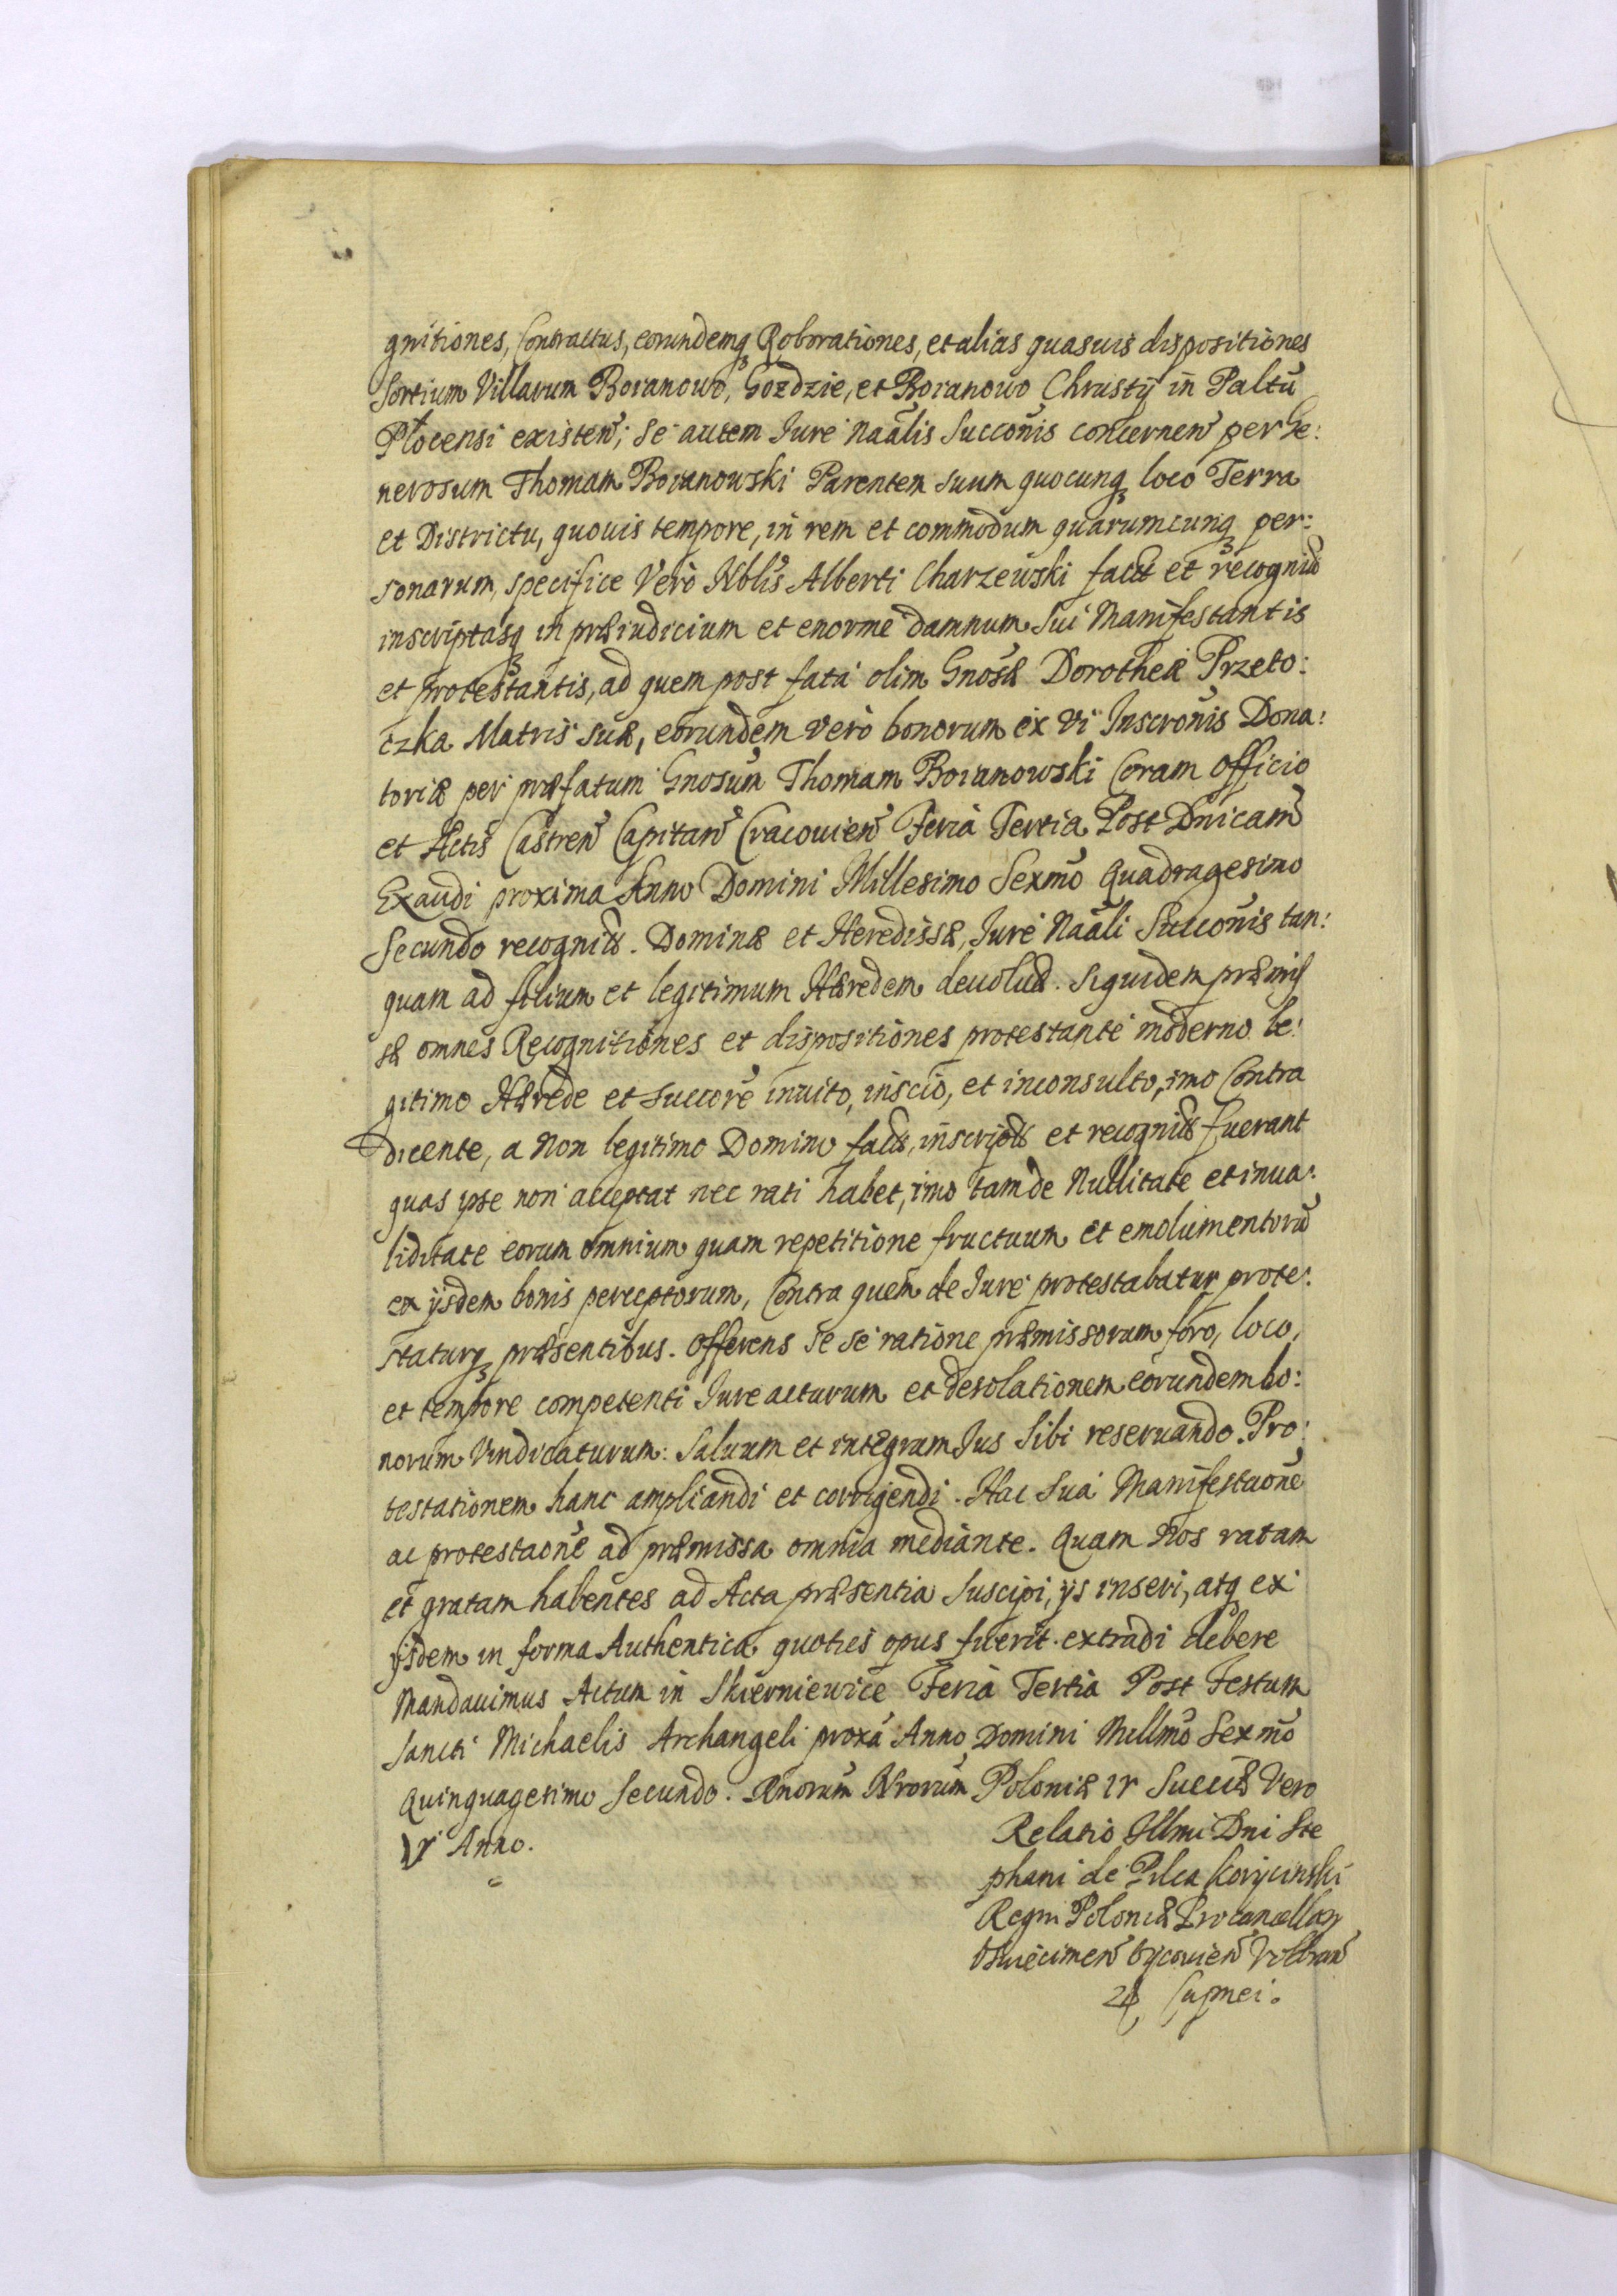 gnitiones, Contractus, eorundemq₃ Roborationes, et alias quasuis dispositiones
Sortium Villarum Boranowo, Gozdzie, et Boranowo Chrustÿ in Paltũ
Plocensi existeñ; se autem Jure Naãlis Succõnis concerneñ per Ge:
nerosum Thomam Boranowski Parentem suum quocunq₃ loco Terra
et Districtu, quouis tempore, in rem et commodum quarumcunq₃ per:
sonarum, specifice Verò Nblis Alberti Charzewski fact et recognit
inscriptasq₃ in præiudicium et enorme damnum Sui Manifestantis
et protestantis, ad quem post fata olim Gnosæ Dorotheæ Przeto:
czka Matris suæ, eorundem verò bonorum ex Vi Inscrõnis Dona:
toriæ per præfatum Gnosum Thomam Boranowski Coram Officio
et Actis Castreñ Capitañ Cracouieñ Feria Tertia Post Dnicam
Exaudi proxima Anno Domini Millesimo Sexmõ Quadragesimo
Secundo recognitæ. Dominæ et Heredissæ, Jure Naãli Succõnis tan:
quam ad filium et legitimum Hæredem deuolutæ. Siquidem præmis
sæ omnes Recognitiones et dispositiones protestante moderno le:
gitimo Hærede et succõre inuito, inscio, et inconsulto, imo Contra
dicente, a Non legitimo Domino factæ, inscriptæ et recognitæ fuerant
quas ipse non acceptat nec rati habet, imo tam de Nullitate et inua:
liditate eorum omnium quam repetitione fructuum et emolumentorũ
ex ÿsdem bonis perceptorum, Contra quem de Jure protestabatur prote:
staturq₃ præsentibus. Offerens se se ratione præmissorum foro, loco,
et tempore competenti Jure acturum et desolationem eorundem bo:
norum Vindicaturum: Saluum et integrum Jus Sibi reseruando. Pro:
testationem hanc ampliandi et corrigendi. Hac Sua Manifestaõne
ac protestaõne ad præmissa omnia mediante. Quam Nos ratam
et gratam habentes ad Acta præsentia Suscipi, ÿs inseri, atq₃ ex
ÿsdem in forma Authentica quoties opus fuerit extradi debere
Mandauimus Actum in Skierniewice Feria Tertia Post Festum
Sancti Michaelis Archangeli proxã Anno Domini Millmõ Sexmõ
Quinquagesimo Secundo. Rnorum Nrorum Poloniæ IV Sueciæ Vero
V Anno.
Relatio Illmi Dni Ste
phani de Pilca Koryciński
Regni Poloniæ Procancellar
Osuiecimeñ Oÿcouieñ
Capnei.